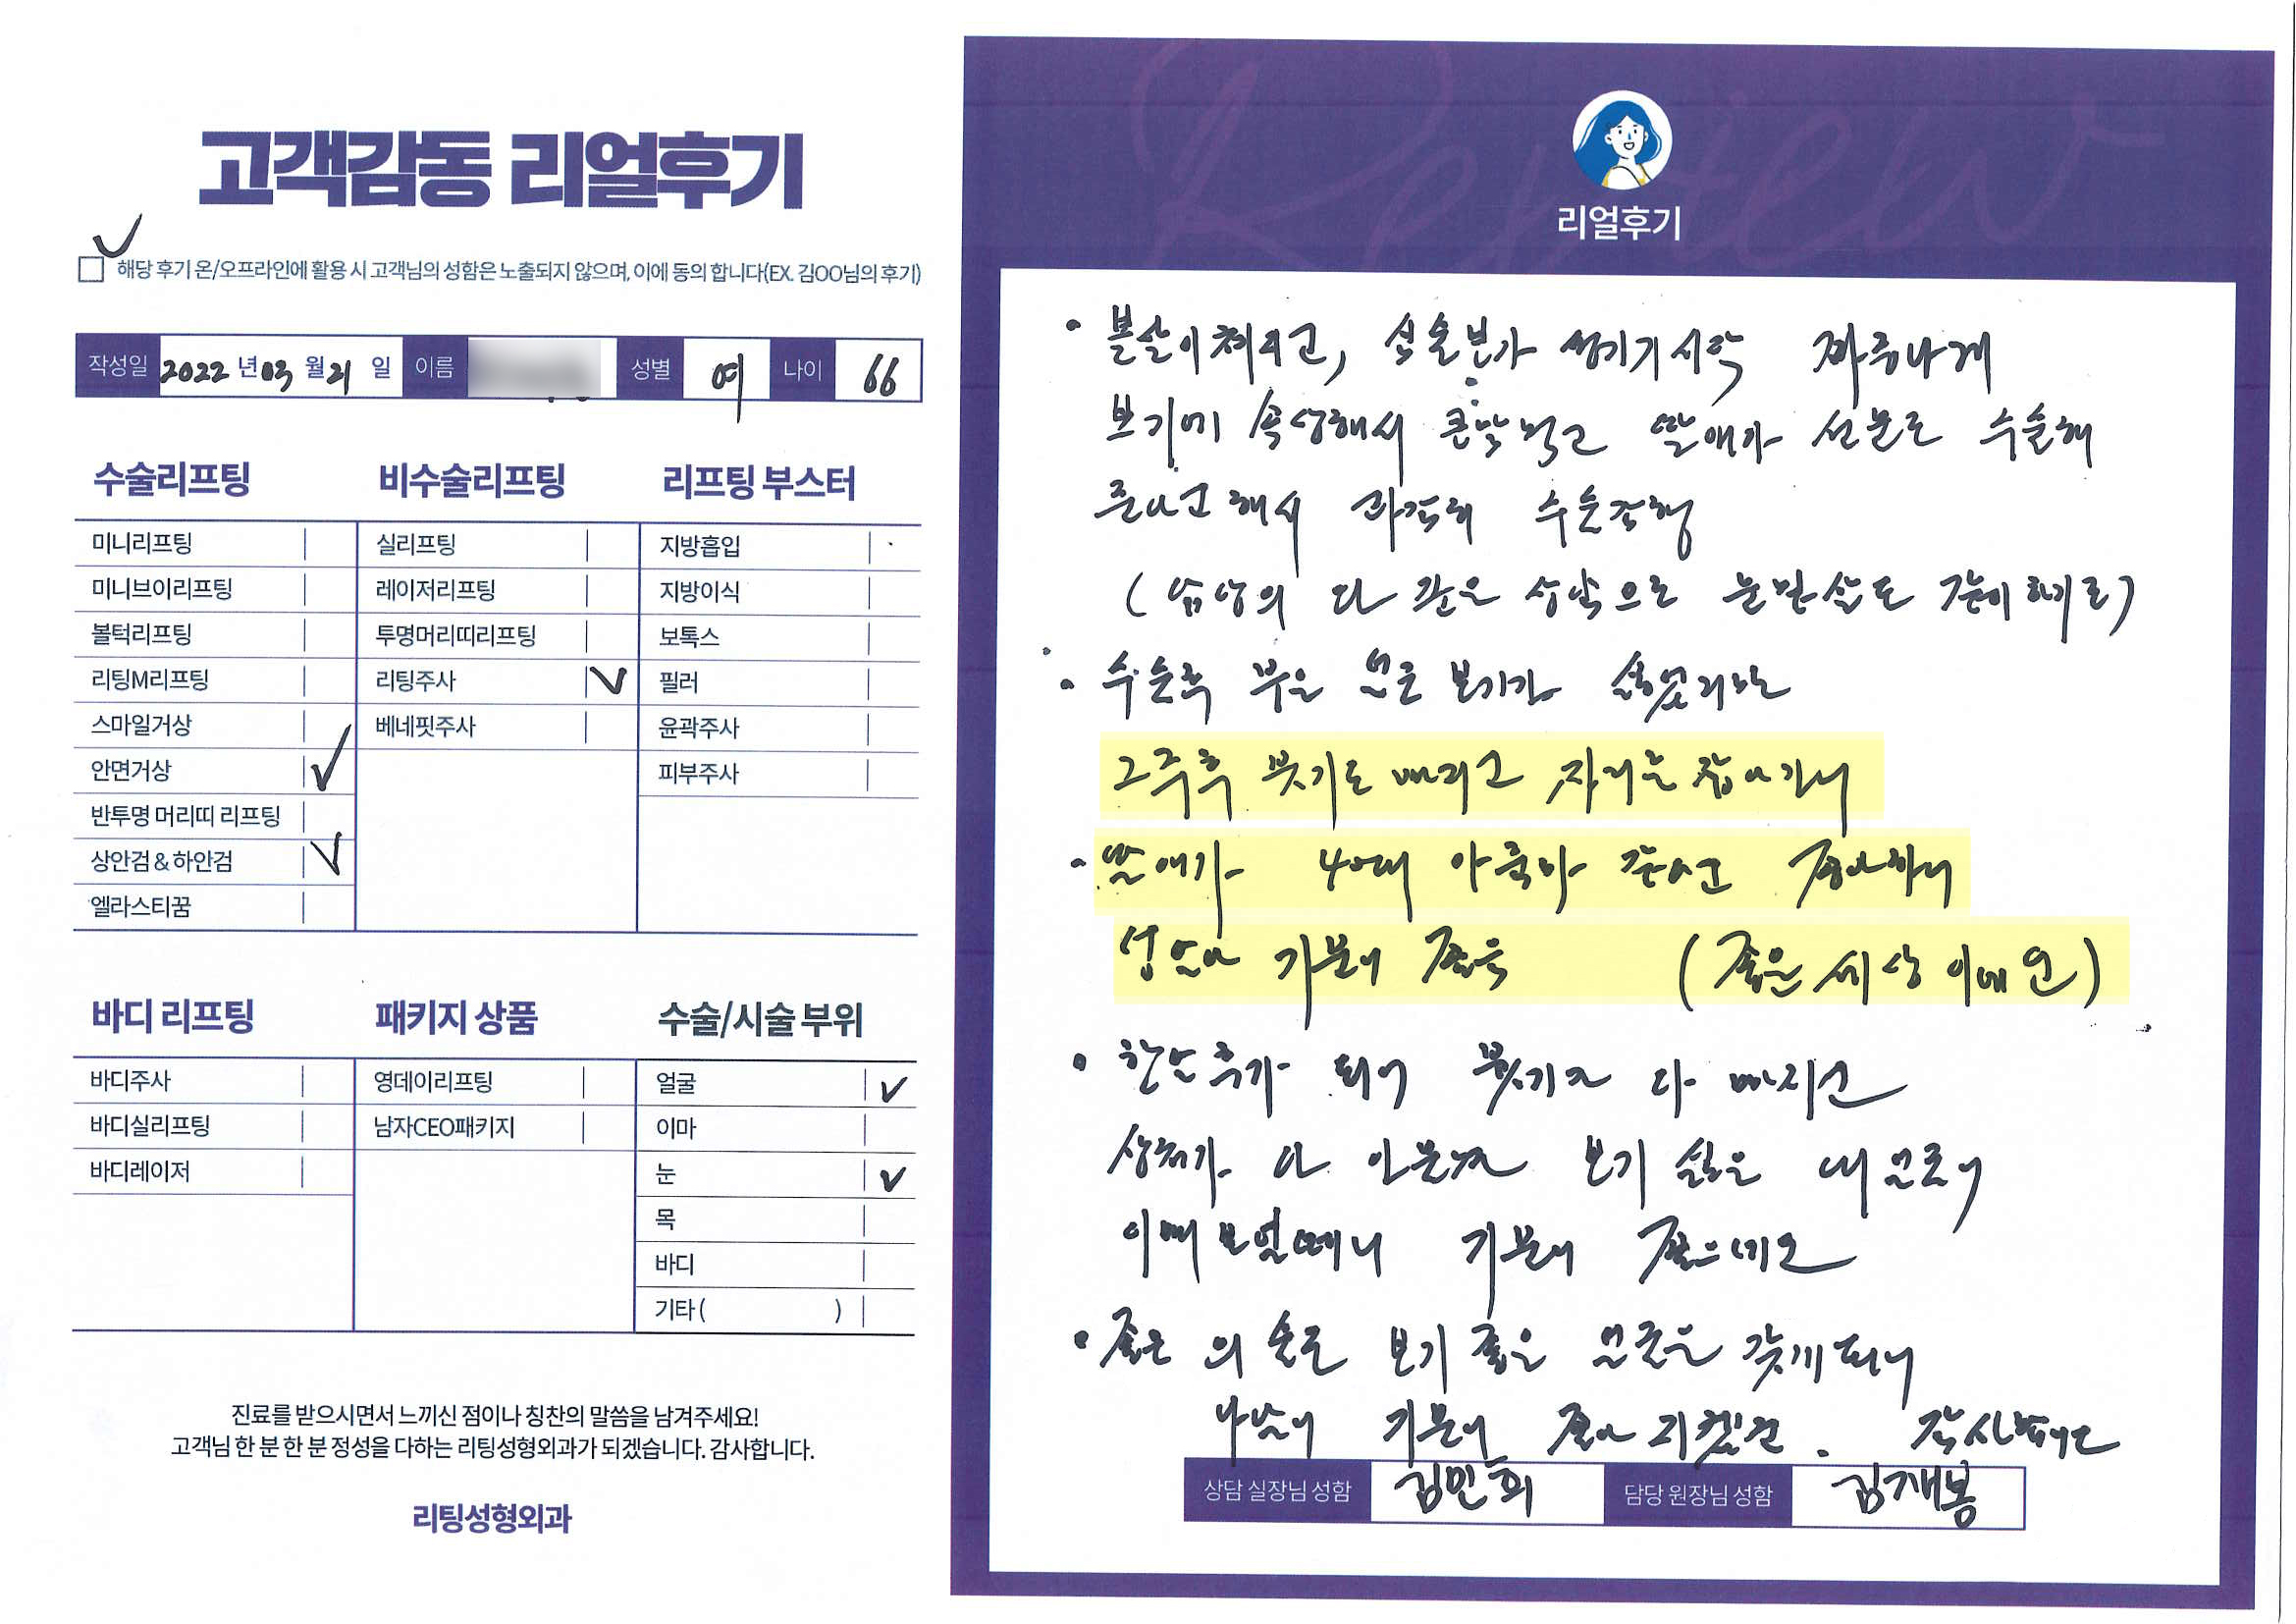 고객감동 리얼후기
해당 후기 온/오프라인에 활용 시 고객님의 성함은 노출되지 않으며, 이에 동의 합니다(EX. 김OO님의 후기)
작성일 2022 년 03 월 21 일 이름 성별 여 나이 66
수술리프팅
미니리프팅
미니브이리프팅
볼턱리프팅
리팅M리프팅
스마일거상
안면거상
반투명 머리띠 리프팅
상안검 & 하안검
엘라스티꿈
비수술리프팅
실리프팅
레이저리프팅
투명머리띠리프팅
리팅주사
베네핏주사
리프팅 부스터
지방흡입
지방이식
보톡스
필러
윤곽주사
피부주사
바디 리프팅
바디주사
바디실리프팅
바디레이저
패키지 상품
영데이리프팅
남자CEO패키지
수술/시술 부위
얼굴
이마
눈
목
바디
기타 ( )
진료를 받으시면서 느끼신 점이나 칭찬의 말씀을 남겨주세요!
고객님 한 분 한 분 정성을 다하는 리팅성형외과가 되겠습니다. 감사합니다.
리팅성형외과
Review
리얼후기
볼살이 쳐지고, 심술보가 생기기시작
보기에 속상해서 큰맘먹고 딸애가 선물로 수술해
준다고 해서 과감히 수술감행
( 의사 상담으로 눈밑살도 같이 하기로)
수술후 부은 얼굴 보기가 싫었지만
2주후 붓기도 빠지고 자리를 잡아가니
딸애가 40대 아줌마 같다고 좋아하니
덩달아 기분이 좋음 (좋은 세상이예요)
한달후가 되어 붓기가 다 빠지고
상처가 다 아물자 보기 싫은 내 얼굴이
이뻐보일때니 기분이 좋으네요
좋은 의술로 보기 좋은 얼굴을 갖게되니
나날이 기분이 좋아지겠죠. 감사합니다
상담 실장님 성함 김민희 담당 원장님 성함 김재봉